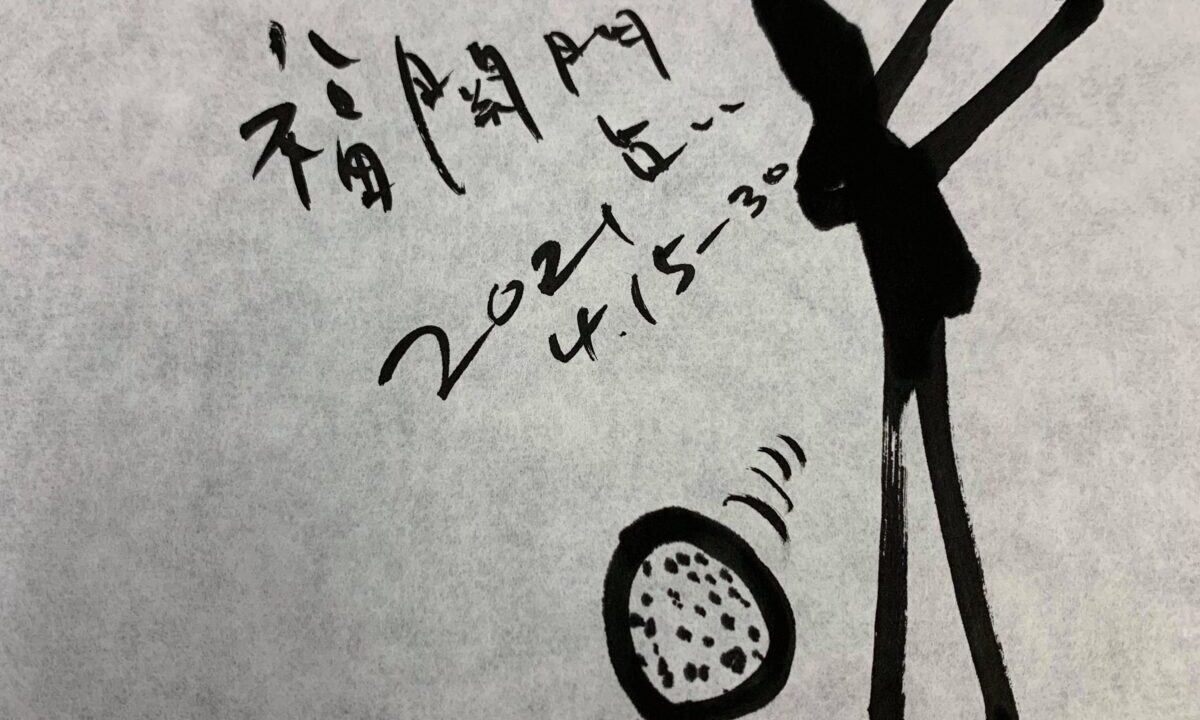 福關門
2021
4.15-30